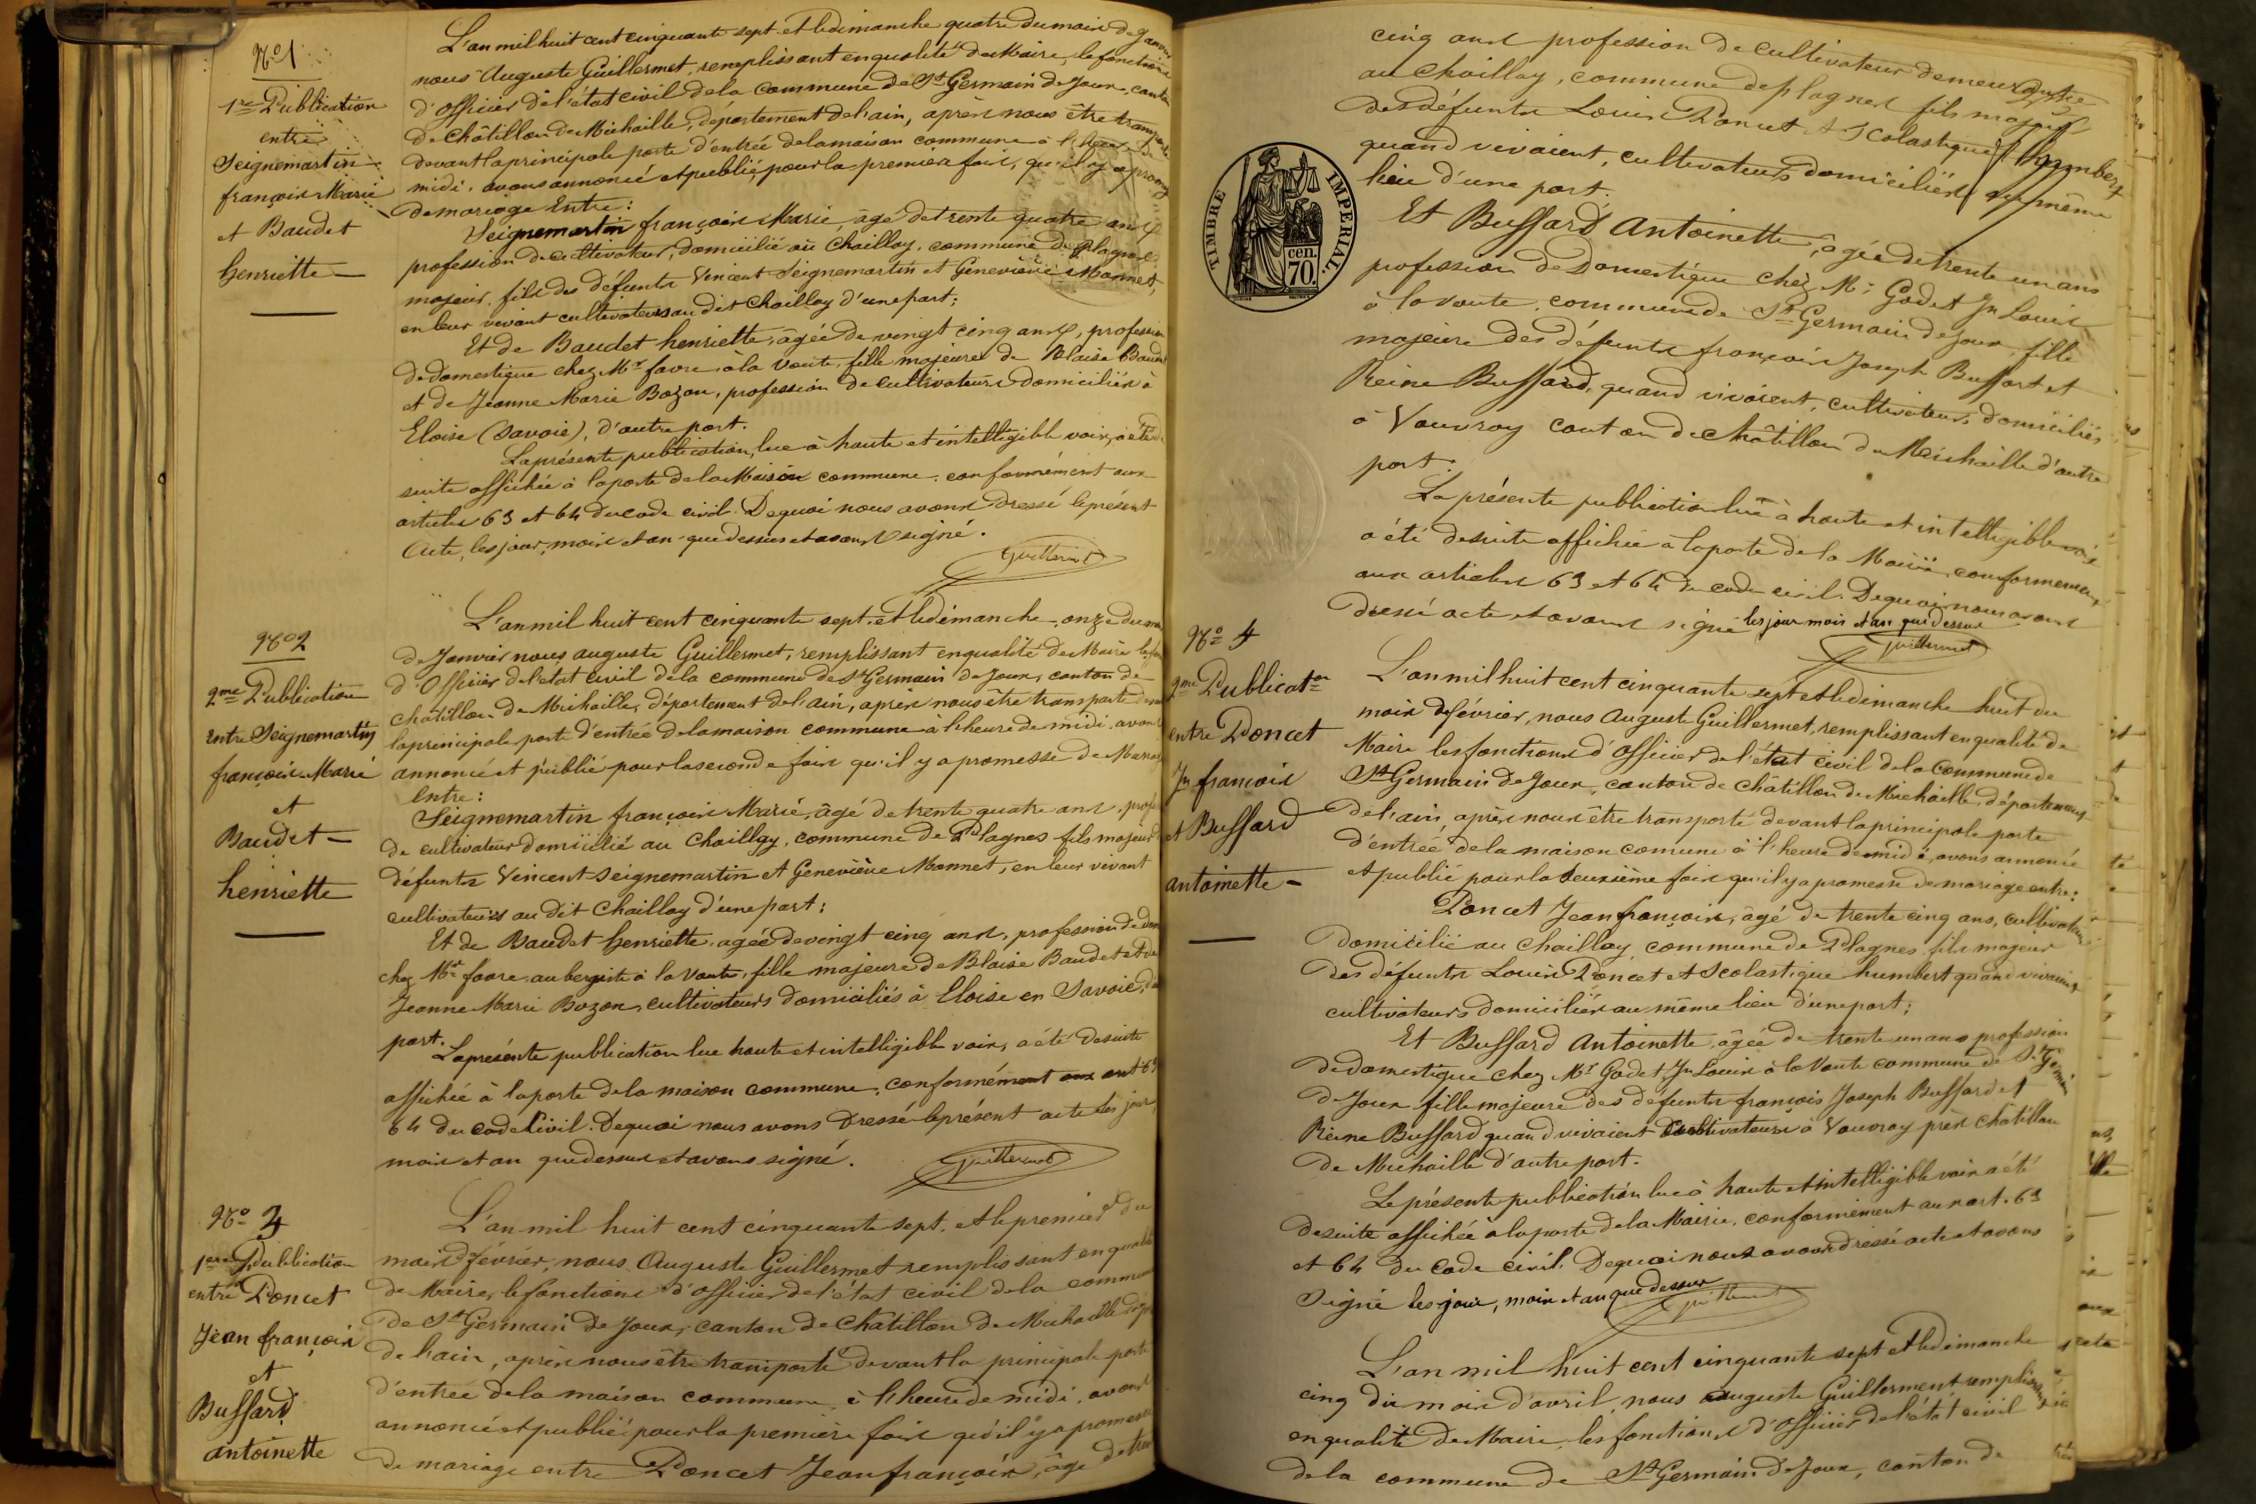 N° 1
1re Publication
entre
Seignemartin
françois Marie
et Baudet
henriette
L'an mil huit cent cinquante sept et le dimanche quatre du mois de Janvier
nous Auguste Guillermet, remplissant en qualité de Maire, les fonctions
d'officier de l'état civil de la commune de St Germain de Joux, canton
de Châtillon de Michaille, département de l'ain, après nous être transporté
devant la principale porte d'entrée de la maison commune à l'heure de
midi, avons annoncé et publié pour la première fois, qu'il y a promesse
de mariage Entre :
Seignemartin françois Marie, âgé de trente quatre ans
profession de cultivateur, domicilié au Chaillay, commune de plagnes
majeur, fils des défunts Vincent Seignemartin et Geneviève Monnet,
en leur vivant cultivateurs au dit Chailloy d'une part ;
Et de Baudet henriette, âgée de vingt cinq ans, profession
de domestique chez Mr favre à la Voute, fille majeure de Blaise Baudet
et de Jeanne Marie Bozon, profession de cultivateurs domiciliés à
Eloise (Savoie), d'autre part.
La présente publication, lue à haute et intelligible voix, a été de
suite affichée à la porte de la Maison commune, conformément aux
articles 63 et 64 du code civil. De quoi nous avons Dressé le présent
Acte, les jour, mois et an que dessus et avons signé.
Guillermet
N° 2
2me Publication
entre Seignemartin
françois Marie
et
Baudet
henriette
L'an mil huit cent cinquante sept et le dimanche onze du mois
de Janvier nous auguste Guillermet, remplissant en qualité de Maire les
d'Officier de l'état civil de la commune de St Germain de Joux, canton de
Châtillon de Michaille, département de l'ain, après nous être transporté
la principale porte d'entrée de la maison commune à l'heure de midi, avons
annoncé et publié pour la seconde fois qu'il y a promesse de
Entre :
Seignemartin françois Marie, âgé de trente quatre ans
de cultivateur domicilié au Chaillay, commune de Plagnes fils majeur
défunts Vincent Seignemartin et Geneviève Monnet, en leur vivant
cultivateurs au Dit Chailloy d'une part ;
Et de Baudet henriette, agée de vingt cinq ans, profession de
chez Mr favre, aubergiste à la Voute, fille majeure de Blaise Baudet et de
Jeanne Marie Bozon, cultivateurs domiciliés à Eloise en Savoie,
part.
La présente publication lue haute et intelligible voix, a été de suite
affichée à la porte de la maison commune, conformément aux art 63
64 du code Civil. De quoi nous avons Dressé le présent acte les jour,
mois et an que dessus et avons signé.
Guillermet
N° 3
1ere Publication
entre Poncet
Jean françois
et
Buffard
antoinette
L'an mil huit cent cinquante sept, et le premier du
mois de février, nous Auguste Guillermet remplissant en qualité
de Maire, les fonctions d'officier de l'état civil de la commune
de St Germain de Joux, canton de Châtillon de Michaille
de l'ain, après nous être transporté devant la principale porte
d'entrée de la maison commune, à l'heure de midi, avons
annoncé et publié pour la première fois qu'il y a promesse
de mariage entre Poncet Jean françois, âgé de trente
cinq ans profession de cultivateur demeurant
au Chaillay, commune de plagnes fils majeur
des défunts Louis Poncet et Scolastique humbert
quand vivaient, cultivateurs domiciliés au même
lieu d'une part.
Et Buffard Antoinette, âgée de trente un ans
profession de Domestique chez Mr Godet Jn Louis
à la voute, commune de St Germain de Joux, fille
majeure des défunts françois Joseph Buffart et
Reine Buffard, quand vivaient, cultivateurs domiciliés
à Vouvray canton de Châtillon de Michaille d'autre
part.
La présente publication lue à haute et intelligible voix
a été de suite affichée à la porte de la Mairie, conformément
aux articles 63 et 64 du code civil. De quoi nous avons
dressé acte et avons signé les jour mois et an que dessus
Guillermet
TIMBRE IMPERIAL.
70.
cen.
N° 4
2me Publicaton
entre Poncet
Jn françois
et Buffard
antoinette
L'an mil huit cent cinquante sept et le dimanche huit du
mois de février, nous Auguste Guillermet, remplissant en qualité de
Maire les fonctions d'officier de l'état civil de la commune de
St Germain de Joux, canton de Châtillon de Michaille, département
de l'ain, après nous être transporté devant la principale porte
d'entrée de la maison comune à l'heure de midi, avons annoncé
et publié pour la deuxième fois qu'il y a promesse de mariage entre :
Poncet Jean françois, âgé de trente cinq ans, cultivateur
domicilié au Chaillay, commune de Plagnes, fils majeur
des défunts Louis Poncet et Scolastique humbert quand vivaient
cultivateurs domiciliés au même lieu d'une part ;
Et Buffard Antoinette, âgée de trente un ans profession
de domestique chez Mr Godet Jn Louis à la Voute commune de St Germain
de Joux fille majeure des défunts françois Joseph Buffard et
Reine Buffard quand vivaient Cultivateurs à Vouvray près Châtillon
de Michaille d'autre part.
La présente publication lue à haute et intelligible voix a été
de suite affichée à la porte de la Mairie, conformément aux art. 63
et 64 du Code civil. De quoi nous avons dressé acte et avons
signé les jour, mois et an que dessus
Guillermet
L'an mil huit cent cinquante sept et le dimanche
cinq du mois d'avril, nous auguste Guillerment remplissant
en qualité de Maire, les fonctions d'officier de l'état civil
de la commune de St Germain de Joux, canton de